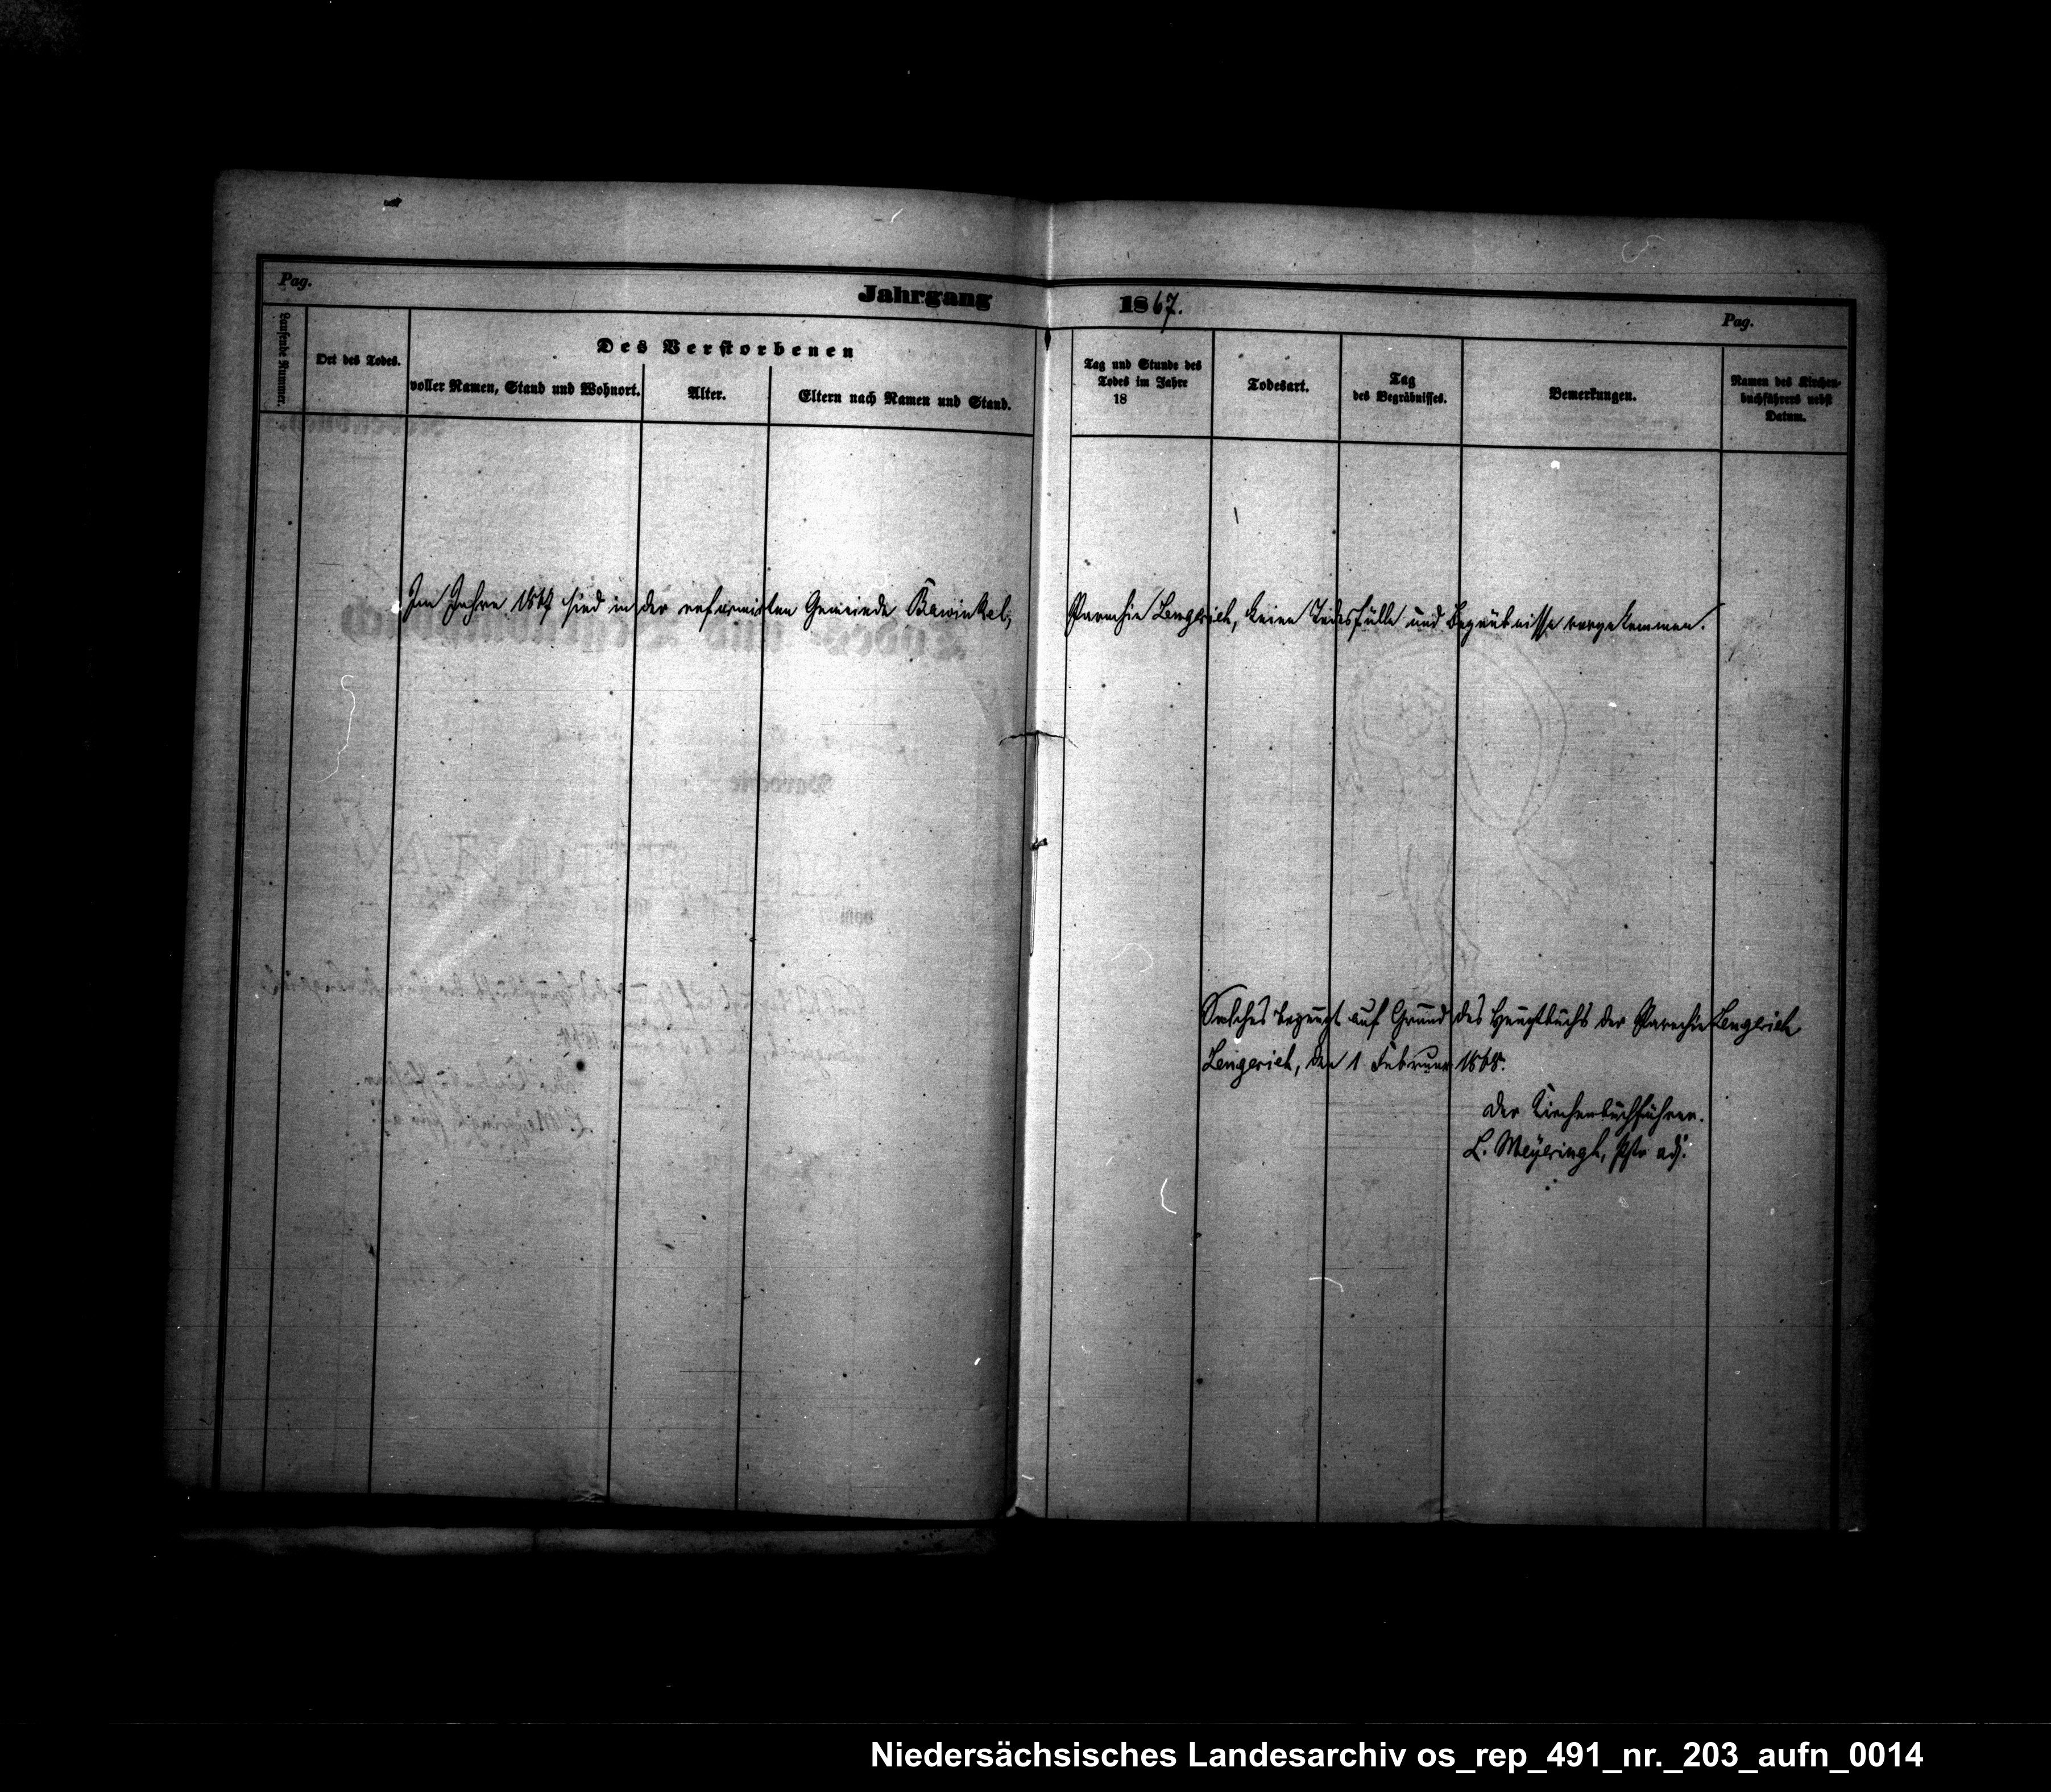 Pag.
Jahrgang 1867.
Pag.
Laufende Nummer.
Ort des Todes.
Des Verstorbenen
voller Namen, Stand und Wohnort.
Alter.
Eltern nach Namen und Stand.
Tag und Stunde des
Todes im Jahre
18
Todesart.
Tag
des Begräbnisses.
Bemerkungen.
Namen des Kirchen-
buchführers nebst
Datum.
Im Jahre 1867 sind in der reformirten Gemeinde Bawinkel, Parochie Lengerich, keine Todesfälle und Begräbnisse vorgekommen.
Solches bezeugt auf Grund des Hauptbuchs der Parochie Lengerich
Lengerich, den 1 Februar 1868.
Der Kirchenbuchführer.
L. Meyeringh, Pstr adj.
Niedersächsisches Landesarchiv os_rep_491_nr._203_aufn_0014